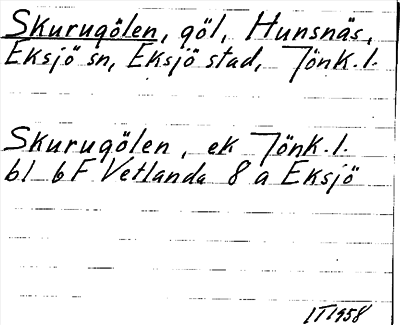 Skurugölen, göl, Hunsnäs,
Eksjö sn, Eksjö stad, Jönk. l.
Skurugölen, ek Jönk. l.
bl 6 F Vetlanda 8 a Eksjö
IT1958